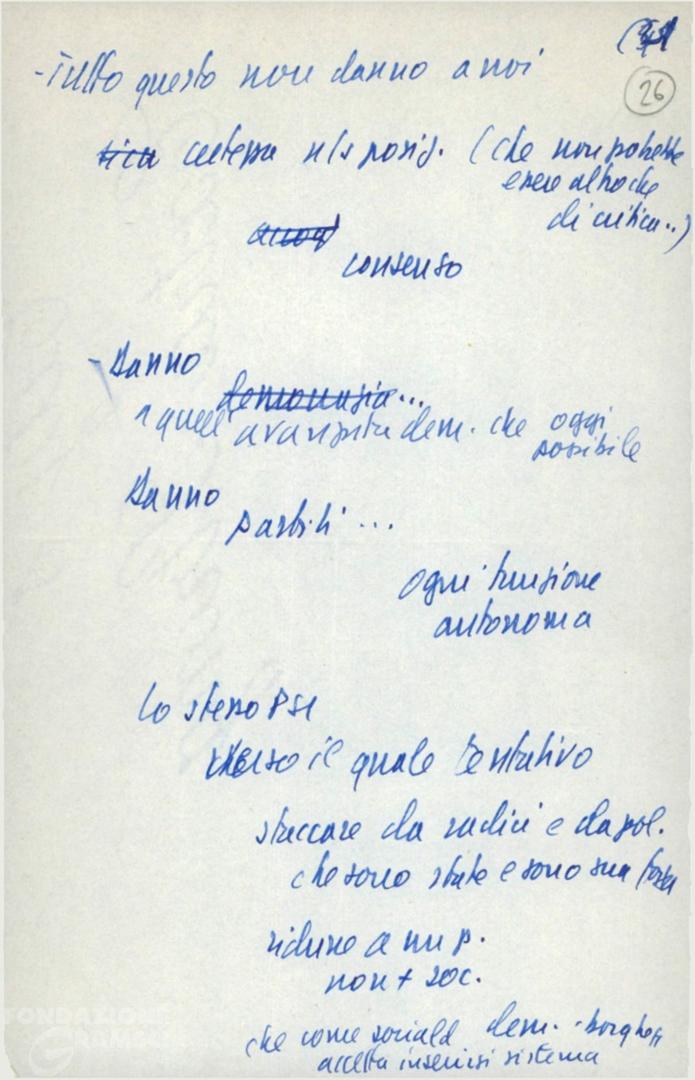 26
- Tutto questo non danno a noi
certezza n/s posiz. (che non potrebbe
essere altro che
di critica..)
consenso
- Danno
democrazia...
a quell'avanzata dem. che oggi
possibile
Danno
partiti ...
ogni funzione
autonoma
lo stesso PSI
verso il quale tentativo
staccare da radici e da pol.
che sono state e sono sua forza
ridurre a un p.
non + soc.
che come sociald. dem.-borghesi
accetta inserirsi sistema
FONDAZIONE
GRAMSCI